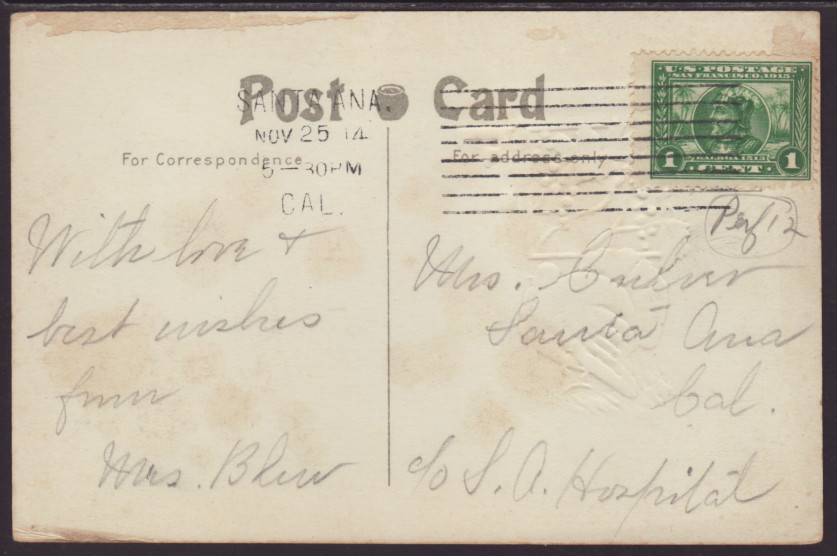 Post Card
SANTA ANA.
NOV 25 14
5-30PM
CAL.
For Correspondence
For address only
U.S. POSTAGE
SAN FRANCISCO 1915
BALBOA 1513
1 CENT 1
Perf 12
With love +
best wishes
from
Mrs. Blew
Mrs. Culver
Santa Ana
Cal.
c/o S. A. Hospital